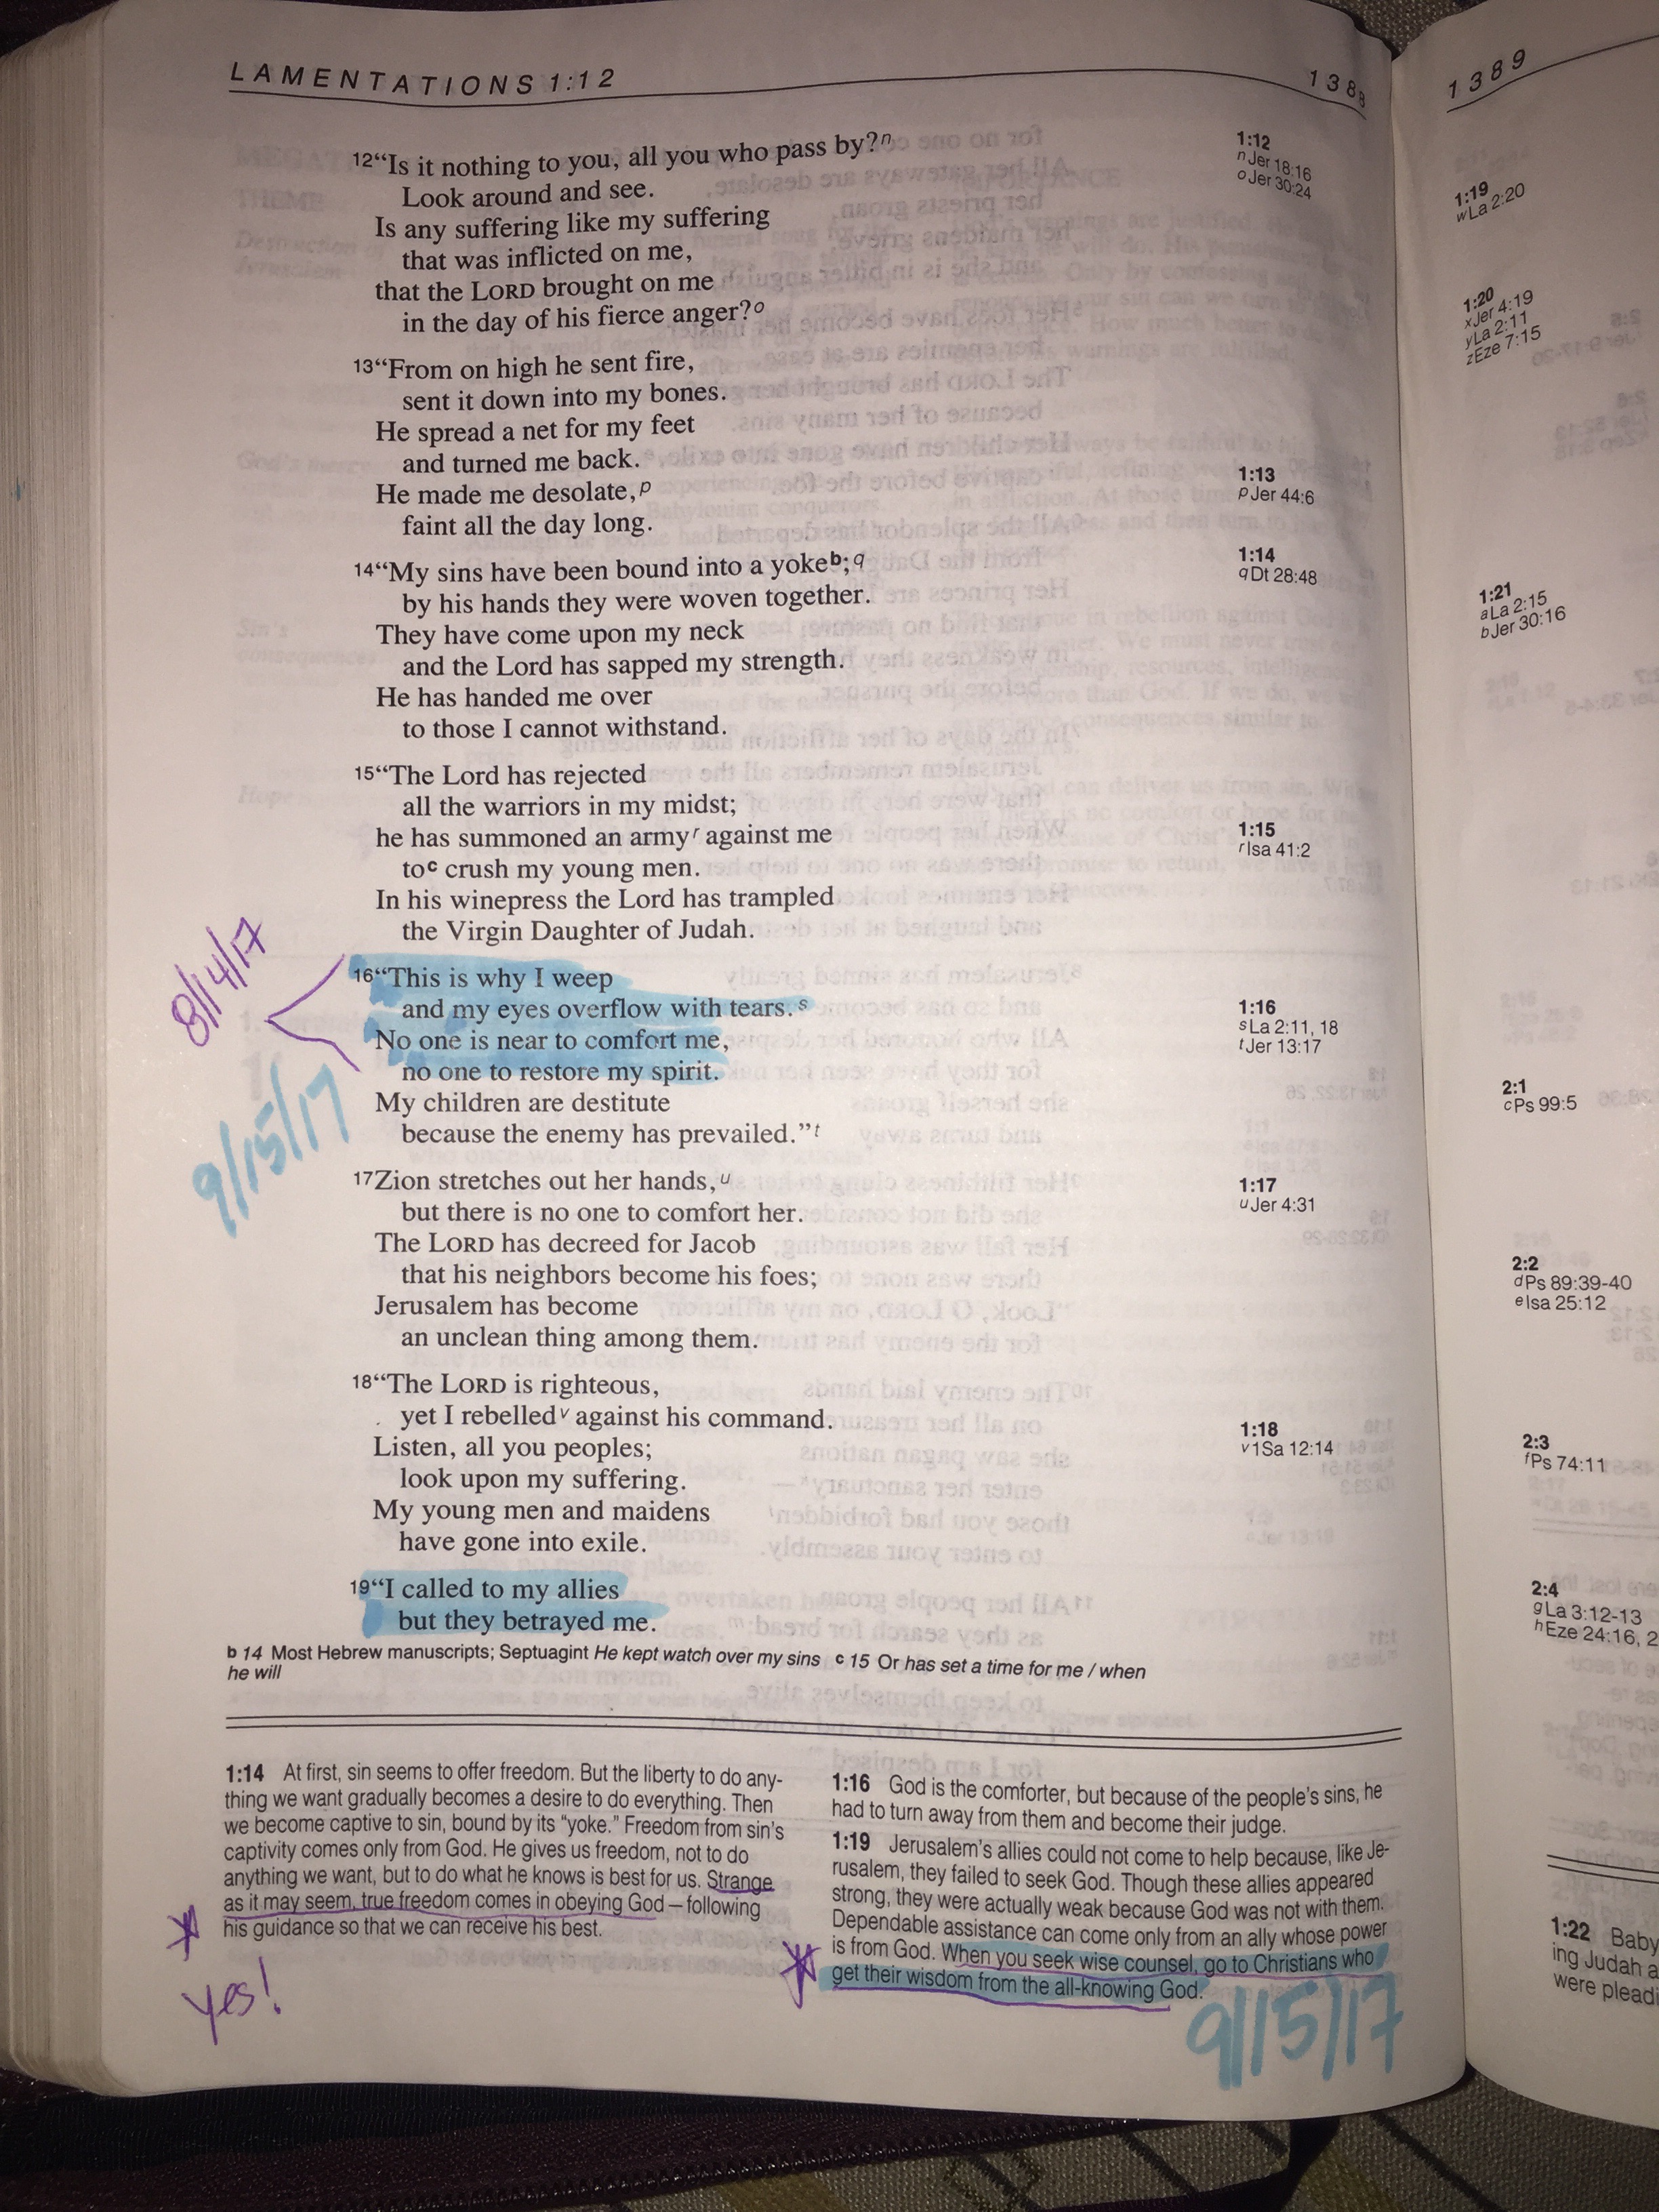 LAMENTATIONS 1:12
1388
12“Is it nothing to you, all you who pass by?n
Look around and see.
Is any suffering like my suffering
that was inflicted on me,
that the LORD brought on me
in the day of his fierce anger?o
13“From on high he sent fire,
sent it down into my bones.
He spread a net for my feet
and turned me back.
He made me desolate,p
faint all the day long.
14“My sins have been bound into a yokeb;q
by his hands they were woven together.
They have come upon my neck
and the Lord has sapped my strength.
He has handed me over
to those I cannot withstand.
15“The Lord has rejected
all the warriors in my midst;
he has summoned an armyr against me
toc crush my young men.
In his winepress the Lord has trampled
the Virgin Daughter of Judah.
16“This is why I weep
and my eyes overflow with tears.s
No one is near to comfort me,
no one to restore my spirit.
My children are destitute
because the enemy has prevailed.”t
17Zion stretches out her hands,u
but there is no one to comfort her.
The LORD has decreed for Jacob
that his neighbors become his foes;
Jerusalem has become
an unclean thing among them.
18“The LORD is righteous,
yet I rebelledv against his command.
Listen, all you peoples;
look upon my suffering.
My young men and maidens
have gone into exile.
19“I called to my allies
but they betrayed me.
8/14/17
9/15/17
1:12
nJer 18:16
oJer 30:24
1:13
pJer 44:6
1:14
qDt 28:48
1:15
rIsa 41:2
1:16
sLa 2:11, 18
tJer 13:17
1:17
uJer 4:31
1:18
v1Sa 12:14
b 14 Most Hebrew manuscripts; Septuagint He kept watch over my sins c 15 Or has set a time for me / when
he will
1:14 At first, sin seems to offer freedom. But the liberty to do any-
thing we want gradually becomes a desire to do everything. Then
we become captive to sin, bound by its “yoke.” Freedom from sin's
captivity comes only from God. He gives us freedom, not to do
anything we want, but to do what he knows is best for us. Strange
as it may seem, true freedom comes in obeying God—following
his guidance so that we can receive his best.
yes!
1:16 God is the comforter, but because of the people's sins, he
had to turn away from them and become their judge.
1:19 Jerusalem's allies could not come to help because, like Je-
rusalem, they failed to seek God. Though these allies appeared
strong, they were actually weak because God was not with them.
Dependable assistance can come only from an ally whose power
is from God. When you seek wise counsel, go to Christians who
get their wisdom from the all-knowing God.
9/15/17
1389
1:19
wLa 2:20
1:20
xJer 4:19
yLa 2:11
zEze 7:15
1:21
aLa 2:15
bJer 30:16
2:1
cPs 99:5
2:2
dPs 89:39-40
eIsa 25:12
2:3
fPs 74:11
2:4
gLa 3:12-13
hEze 24:16, 2
1:22 Baby
ing Judah a
were pleadi